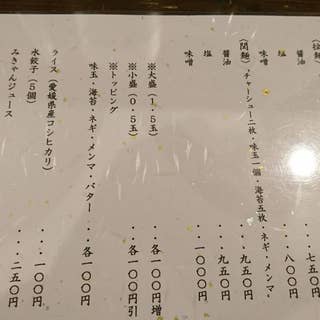 拉麺）
醤油・・・七五〇円
塩・・・八〇〇円
味噌
（閃麺）・チャーシュー二枚・味玉一個・海苔五枚・ネギ・メンマ・
醤油・・・九五〇円
塩・・・九五〇円
味噌・・・一〇〇〇円
※大盛（１．５玉）・・・各一〇〇円増
※小盛（０．５玉）・・・各一〇〇円引
※トッピング
味玉・海苔・ネギ・メンマ・バター・・・各一〇〇円
ライス（愛媛県産コシヒカリ）・・・一〇〇円
水餃子（５個）
みきゃんジュース・・・二五〇円